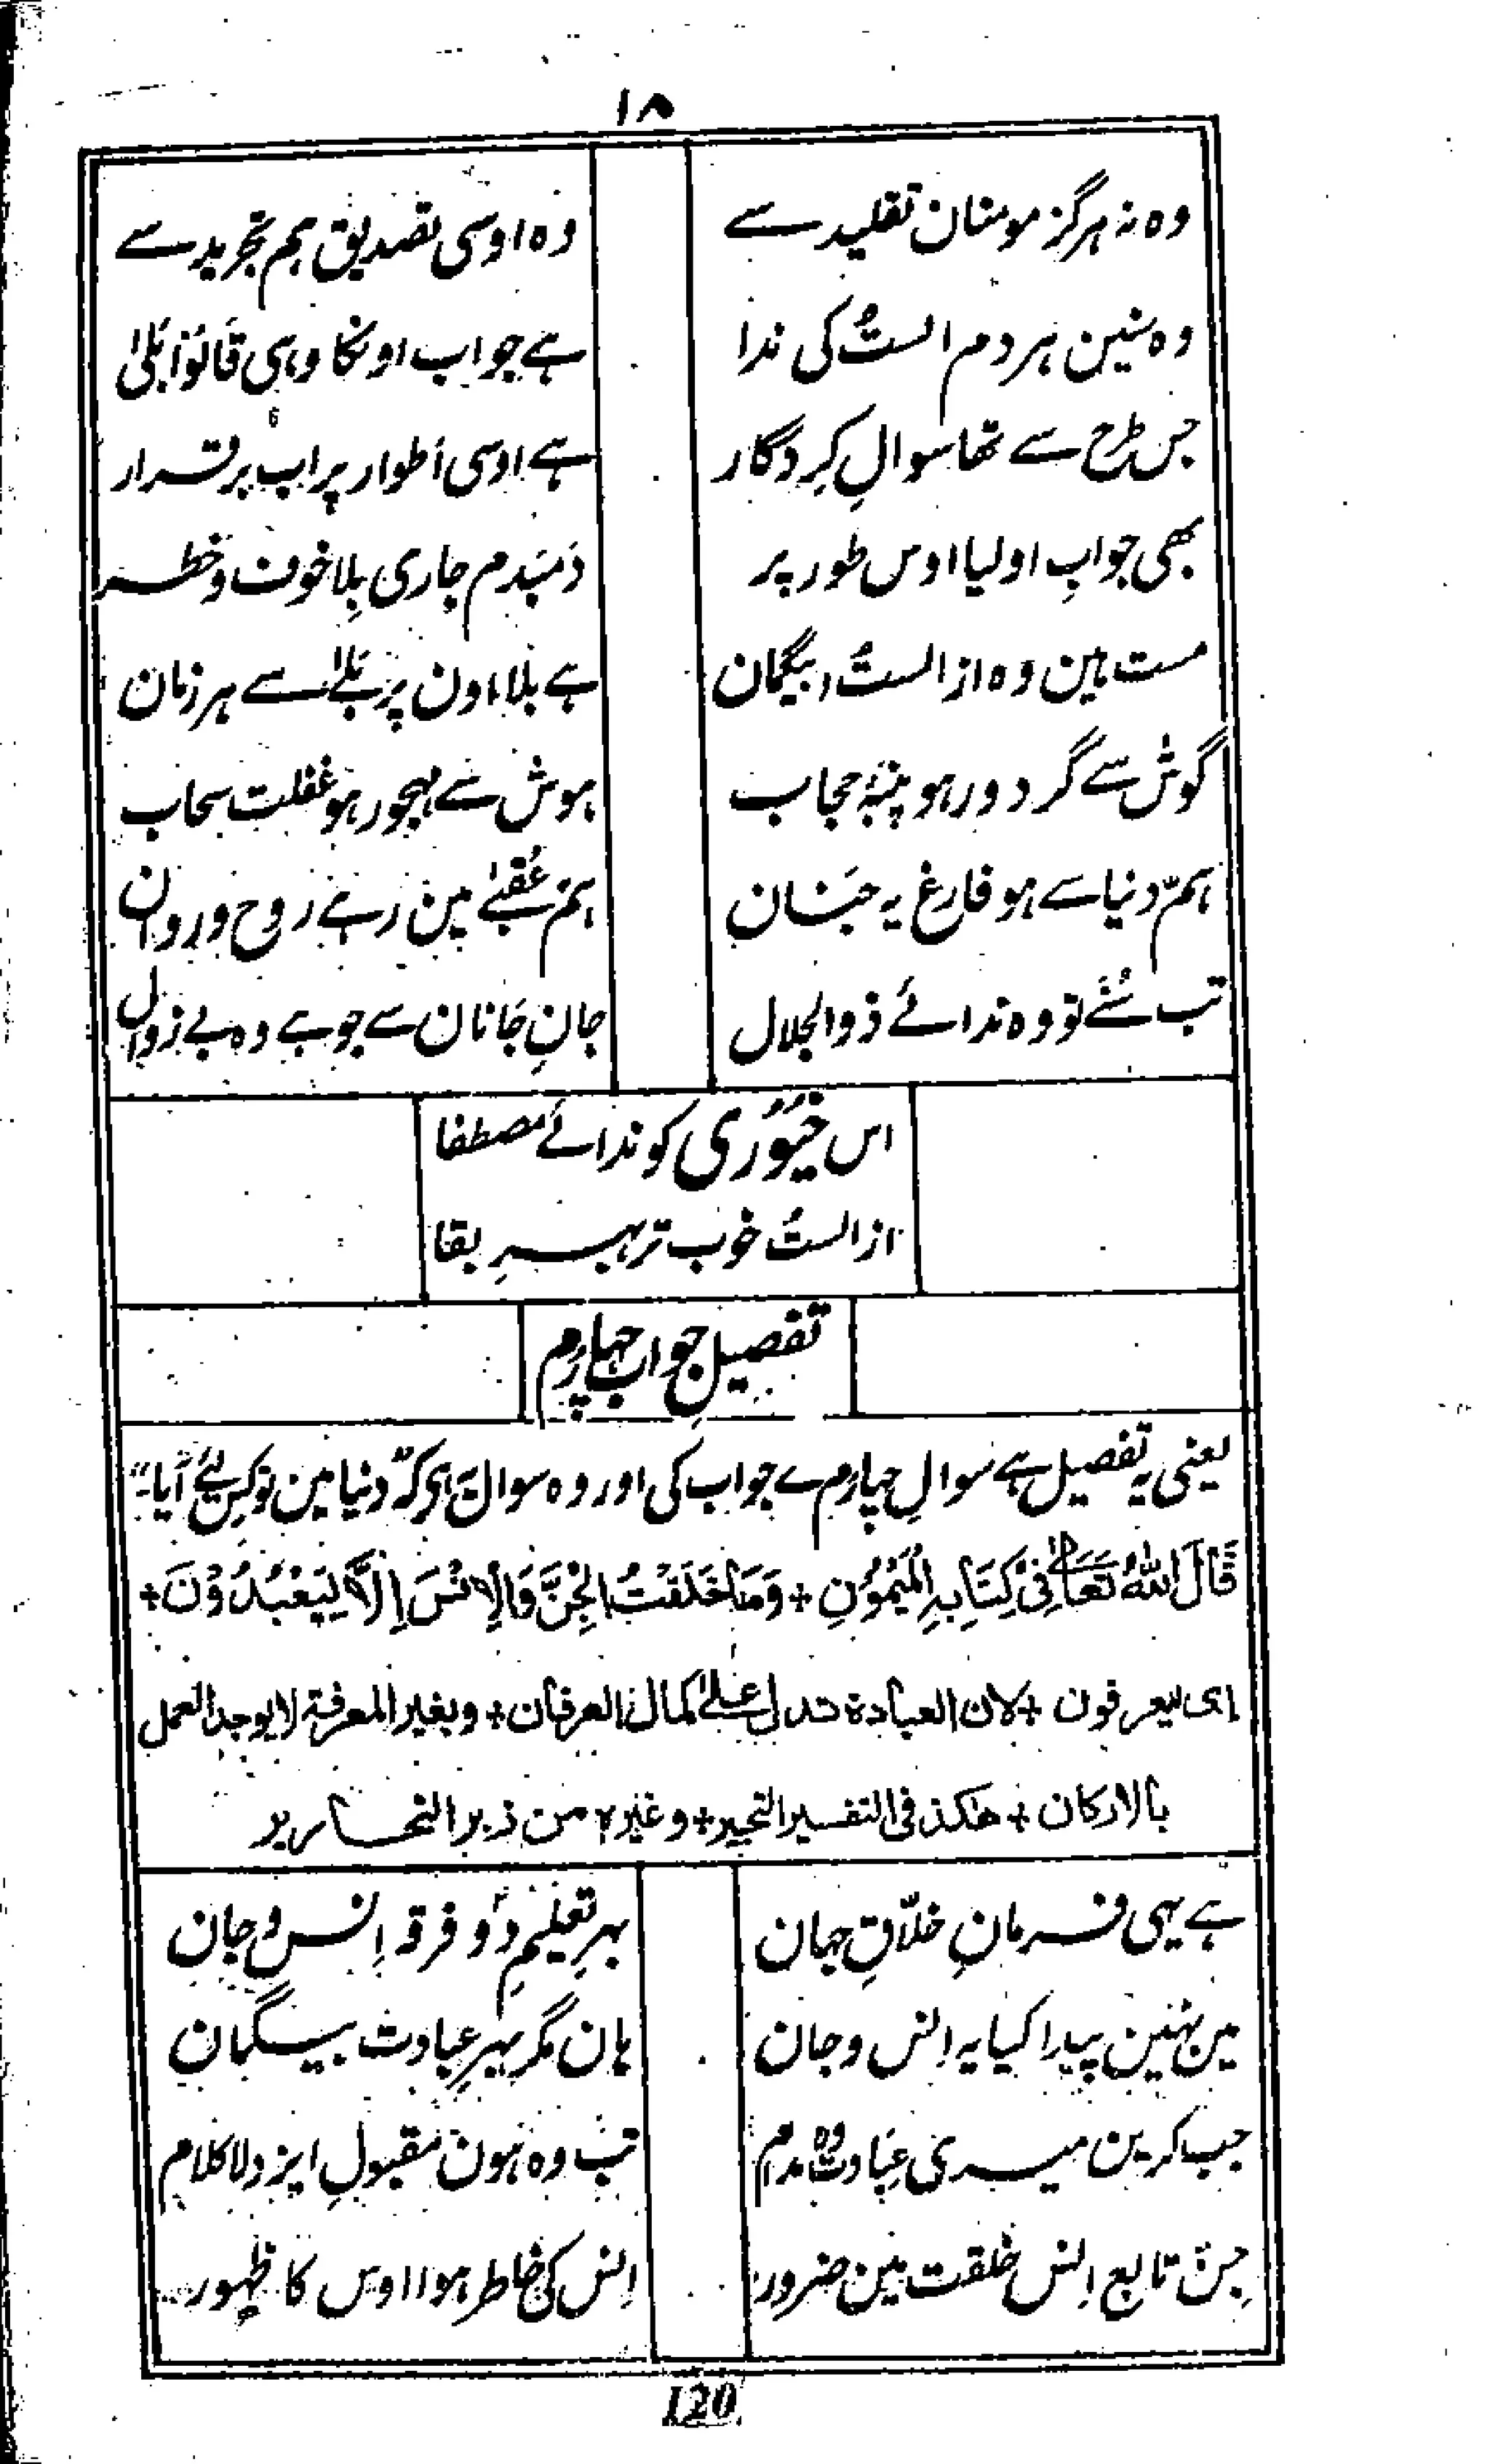 ۱۸
وہ نہ ہرگز مومنان تقلید سے وہ اوسی تصدیق ہم تجرید سے
وہ سنین ہر دم الستُ کی ندا ہے جواب اونکا وہی قَالُوْا بَلیٰ
جس طرح سے تھا سوالِ کردگار ہے اوسی اطوار پر اب برقرار
بھی جوابِ اولیا اوس طور پر دَمبَدم جاری بِلا خوف و خطر
مست ہین وہ از الستُ بیگمان ہے بلا اون پر بَلےٰ سے ہر زمان
گوش سے گر دور ہو پنبۂ حجاب ہوش سے مہجور ہو غفلت سحاب
ہم دنیا سے ہو فارغ یہ جَنان ہم عُقبےٰ مین رہے روح و روان
تب سُنے تو وہ ندائے ذوالجلال جانِ جانان سے جو ہے وہ بے زوال
اس خیوری کو ندائے مصطفا
از الستُ خوب تر بہرِ بقا
تفصیلِ جواب چہارم
یعنی یہ تفصیل ہے سوالِ چہارم کے جواب کی اور وہ سوال یہ ہی کہ دنیا مین تو کس لیئے آیا
قَالَ اللّٰهُ تَعَالٰی فِیْ کِتَابِهِ الْمَیْمُوْنِ + وَمَا خَلَقْتُ الْجِنَّ وَالْاِنْسَ اِلَّا لِیَعْبُدُوْنَ +
ای لیعرفون + لان العبادة تدل علےٰ کمال العرفان + وبغیر المعرفة لا یوجد العمل
بالارکان + هکذ فی التفسیر التحیر + وغیره من زبر النحاریر
ہے یہی فرمانِ خلّاقِ جہان بہرِ تعلیمِ دو فرقہ اِنس و جان
مین نہین پیدا کیا یہ اِنس و جان ہان مگر بہرِ عبادت بیگمان
جب کرین میری عبادت وہ مدام تب وہ ہون مقبولِ ایزد لاکلام
جن تابع اِنس خلقت مین ضرور اِنس کی خاطر ہوا اوس کا ظہور
120